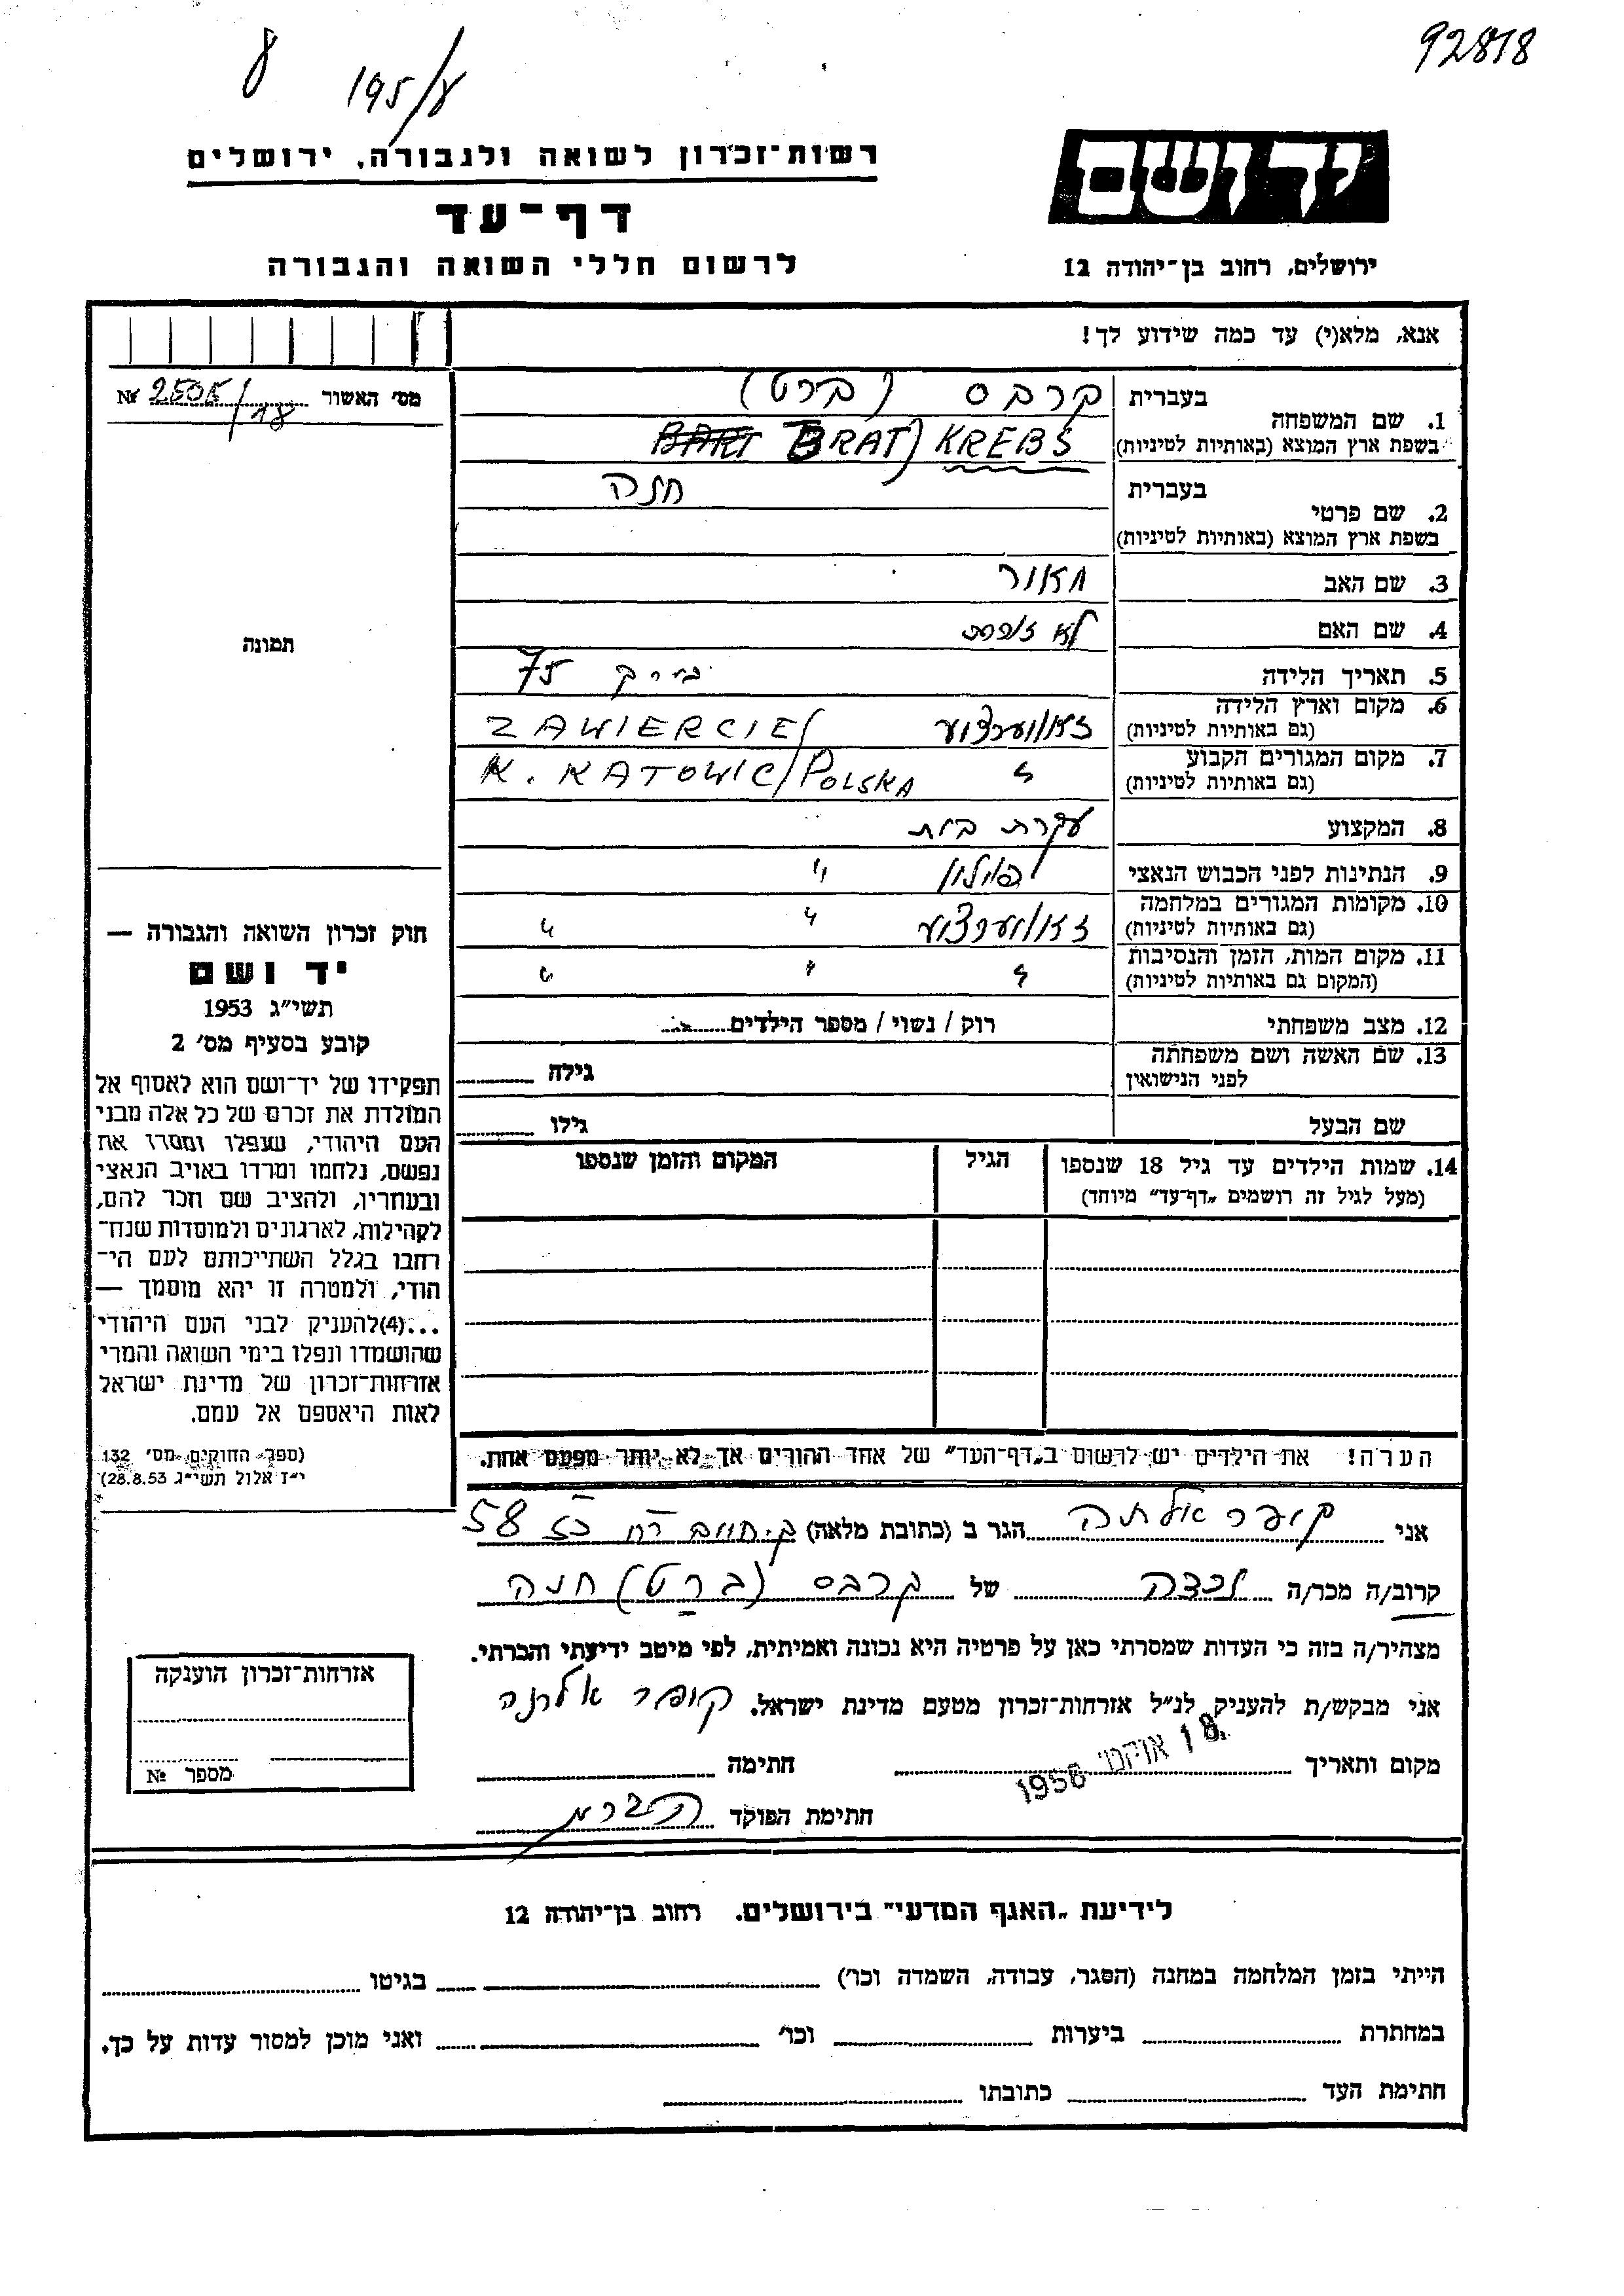 92818
195/8
8
יד ושם
ירושלים, רחוב בן־יהודה 12
רשות־זכרון לשואה ולגבורה, ירושלים
דף־עד
לרשום חללי השואה והגבורה
אנא, מלא(י) עד כמה שידוע לך!
מס' האשור 2505/18 №
1. שם המשפחה
בעברית קרבס (ברט)
בשפת ארץ המוצא (באותיות לטיניות) BRAT) KREBS
2. שם פרטי
בעברית חנה
בשפת ארץ המוצא (באותיות לטיניות)
3. שם האב מאור
4. שם האם לא זוכרת
5. תאריך הלידה 75
6. מקום וארץ הלידה
(גם באותיות לטיניות) זאווערצע ZAWIERCIE/
7. מקום המגורים הקבוע
(גם באותיות לטיניות) " K. KATOWIC/POLSKA
8. המקצוע עקרת בית
9. הנתינות לפני הכבוש הנאצי פולין "
10. מקומות המגורים במלחמה
(גם באותיות לטיניות) זאווערצע " "
11. מקום המות, הזמן והנסיבות
(המקום גם באותיות לטיניות) " " "
12. מצב משפחתי רוק / נשוי / מספר הילדים
13. שם האשה ושם משפחתה
לפני הנישואין גילה
שם הבעל גילו
14. שמות הילדים עד גיל 18 שנספו הגיל המקום והזמן שנספו
(מעל לגיל זה רושמים „דף־עד" מיוחד)
הערה! את הילדים יש לרשום ב„דף־העד" של אחד ההורים אך לא יותר מפעם אחת.
תמונה
חוק זכרון השואה והגבורה —
יד ושם
תשי"ג 1953
קובע בסעיף מס' 2
תפקידו של יד־ושם הוא לאסוף אל
המולדת את זכרם של כל אלה מבני
העם היהודי, שנפלו ומסרו את
נפשם, נלחמו ומרדו באויב הנאצי
ובעוזריו, ולהציב שם וזכר להם,
לקהילות, לארגונים ולמוסדות שנח־
רבו בגלל השתייכותם לעם הי־
הודי, ולמטרה זו יהא מוסמך —
...(4)להעניק לבני העם היהודי
שהושמדו ונפלו בימי השואה והמרי
אזרחות־זכרון של מדינת ישראל
לאות היאספם אל עמם.
(ספר החוקים מס' 132
י"ז אלול תשי"ג 28.8.53)
אני קופר הגר ב (כתובת מלאה) ק. חיים רח 58
קרוב/ה מכר/ה נכדה של קרבס (ברט) חנה
מצהיר/ה בזה כי העדות שמסרתי כאן על פרטיה היא נכונה ואמיתית, לפי מיטב ידיעתי והכרתי.
אני מבקש/ת להעניק לנ"ל אזרחות־זכרון מטעם מדינת ישראל. קופר
מקום ותאריך 18 אוקט' 1956 חתימה
חתימת הפוקד
אזרחות־זכרון הוענקה
מספר №
לידיעת „האגף המדעי" בירושלים. רחוב בן־יהודה 12
הייתי בזמן המלחמה במחנה (הסגר, עבודה, השמדה וכו') בגיטו
במחתרת ביערות וכו' ואני מוכן למסור עדות על כך.
חתימת העד כתובתו